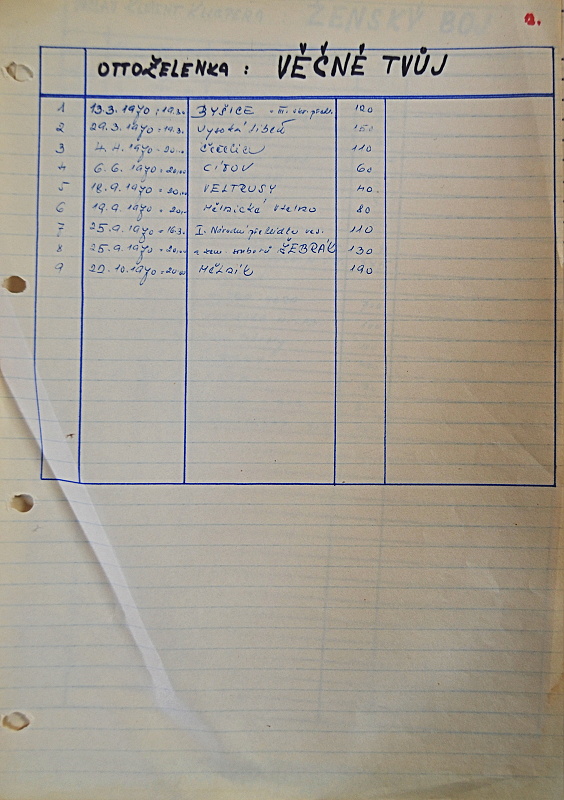 2.
OTTO ZELENKA : VĚČNĚ TVŮJ
1 13.3.1970 : 19.30 BYŠICE - III. okr. přehl. 120
2 29.3.1970 : 19.30 Vysoká Libeň 150
3 4.4.1970 - 20.00 Čečelice 110
4 6.6.1970 = 20.00 CÍTOV 60
5 18.9.1970 = 20.00 VELTRUSY 40
6 19.9.1970 = 20.00 Mělnická Vrutice 80
7 25.9.1970 = 16.30 I. Národní přehlídka ves. 110
8 25.9.1970 = 20.00 a zem. souborů ŽEBRÁK 130
9 20.10.1970 = 20.00 MĚLNÍK 190